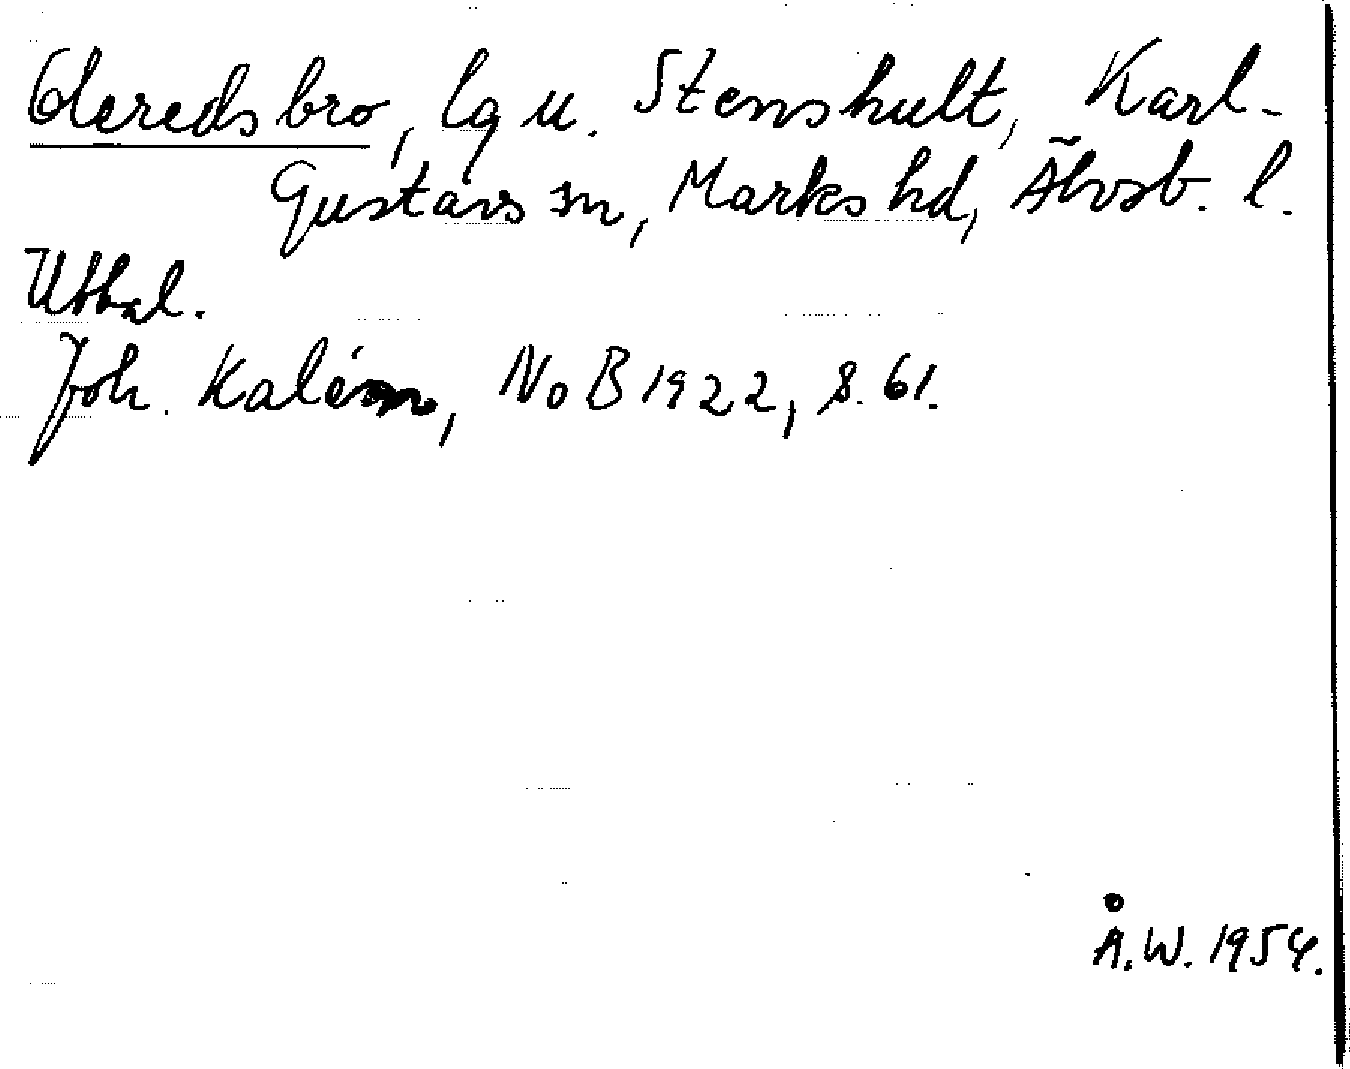 Oleredsbro, lg u. Stenshult, Karl-
Gustavs sn, Marks hd, Älvsb. l.
Uttal.
Joh. Kalén, NoB 1922, s. 61.
Å. W. 1954.